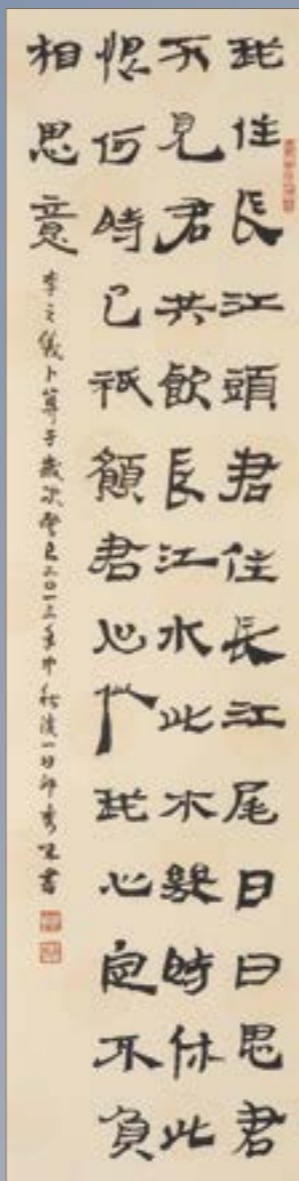 我住長江頭君住長江尾日日思君
不見君共飲長江水此水幾時休此
恨何時已祇願君心似我心定不負
相思意
李之儀卜算子歲次癸巳二〇一三年中秋後一日邱秀書